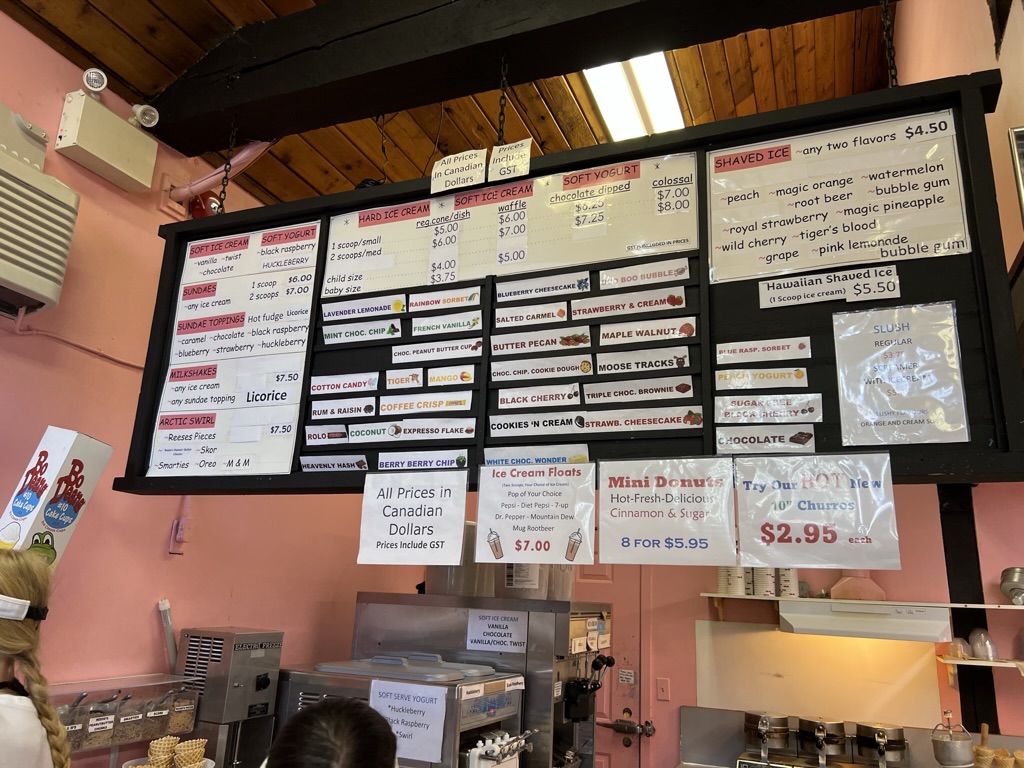 All Prices
in Canadian
Dollars
Prices
Include
GST
SOFT ICE CREAM
~vanilla ~twist
~chocolate
SOFT YOGURT
~black raspberry
HUCKLEBERRY
SUNDAES
~any ice cream
1 scoop $6.00
2 scoops $7.00
SUNDAE TOPPINGS Hot fudge Licorice
~caramel ~chocolate ~black raspberry
~blueberry ~strawberry ~huckleberry
MILKSHAKES $7.50
~any ice cream
~any sundae topping Licorice
ARCTIC SWIRL $7.50
~Reeses Pieces
~Skor
~Smarties ~Oreo ~M & M
* HARD ICE CREAM * SOFT ICE CREAM * SOFT YOGURT *
reg.cone/dish waffle chocolate dipped colossal
1 scoop/small $5.00 $6.00 $6.25 $7.00
2 scoops/med $6.00 $7.00 $7.25 $8.00
child size $4.00 $5.00
baby size $3.75
GST IS INCLUDED IN PRICES
LAVENDER LEMONADE
RAINBOW SORBET
MINT CHOC. CHIP
FRENCH VANILLA
CHOC. PEANUT BUTTER CUP
COTTON CANDY
TIGER
MANGO
RUM & RAISIN
COFFEE CRISP
ROLO
COCONUT
EXPRESSO FLAKE
HEAVENLY HASH
BERRY BERRY CHIP
BLUEBERRY CHEESECAKE
BOO BUBBLE
SALTED CARMEL
STRAWBERRY & CREAM
BUTTER PECAN
MAPLE WALNUT
CHOC. CHIP. COOKIE DOUGH
MOOSE TRACKS
BLACK CHERRY
TRIPLE CHOC. BROWNIE
COOKIES 'N CREAM
STRAWB. CHEESECAKE
WHITE CHOC. WONDER
SHAVED ICE ~any two flavors $4.50
~peach ~magic orange ~watermelon
~root beer ~bubble gum
~royal strawberry ~magic pineapple
~wild cherry ~tiger's blood
~grape ~pink lemonade
bubble gum
Hawaiian Shaved Ice
(1 Scoop ice cream) $5.50
BLUE RASP. SORBET
PEACH YOGURT
SUGAR FREE
BLACK CHERRY
CHOCOLATE
SLUSH
REGULAR
SCREAMER
WITH ICE CREAM
ORANGE AND CREAM
All Prices in
Canadian
Dollars
Prices Include GST
Ice Cream Floats
Pop of Your Choice
Pepsi - Diet Pepsi - 7-up
Dr. Pepper - Mountain Dew
Mug Rootbeer
$7.00
Mini Donuts
Hot-Fresh-Delicious
Cinnamon & Sugar
8 FOR $5.95
Try Our HOT New
10" Churros
$2.95 each
#10
Cake Cups
ELECTRO FREEZE
SOFT ICE CREAM
VANILLA
CHOCOLATE
VANILLA/CHOC. TWIST
SOFT SERVE YOGURT
*Huckleberry
Black Raspberry
*Swirl